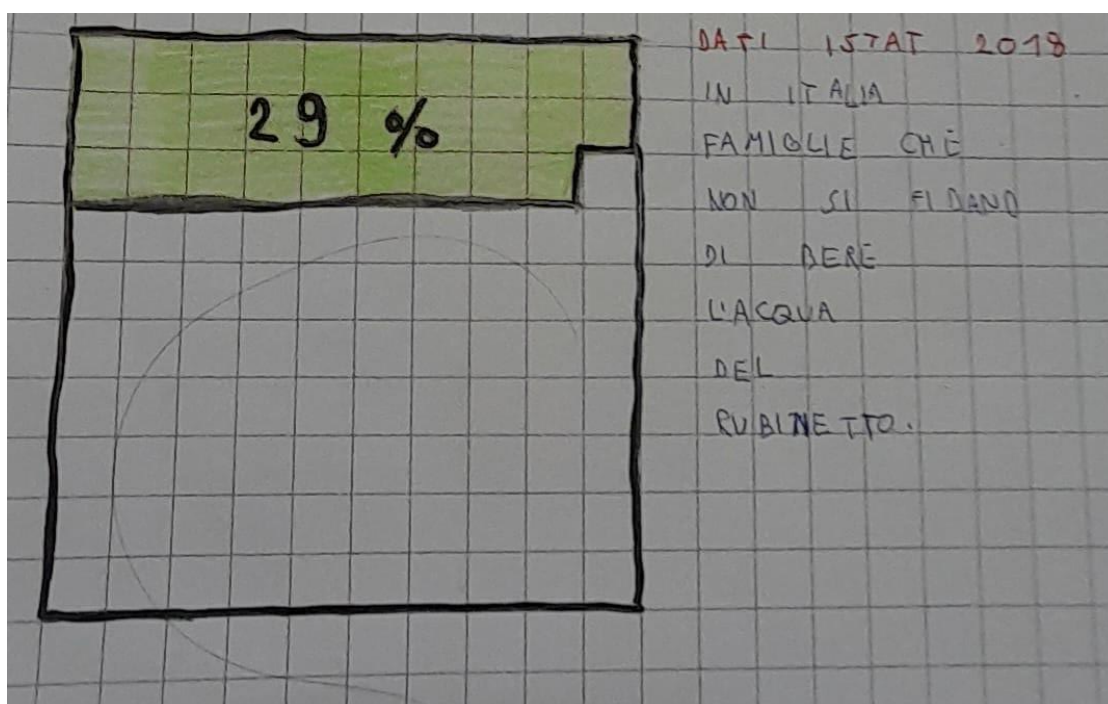 29 %
DATI ISTAT 2018
IN ITALIA
FAMIGLIE CHE
NON SI FIDANO
DI BERE
L'ACQUA
DEL
RUBINETTO.